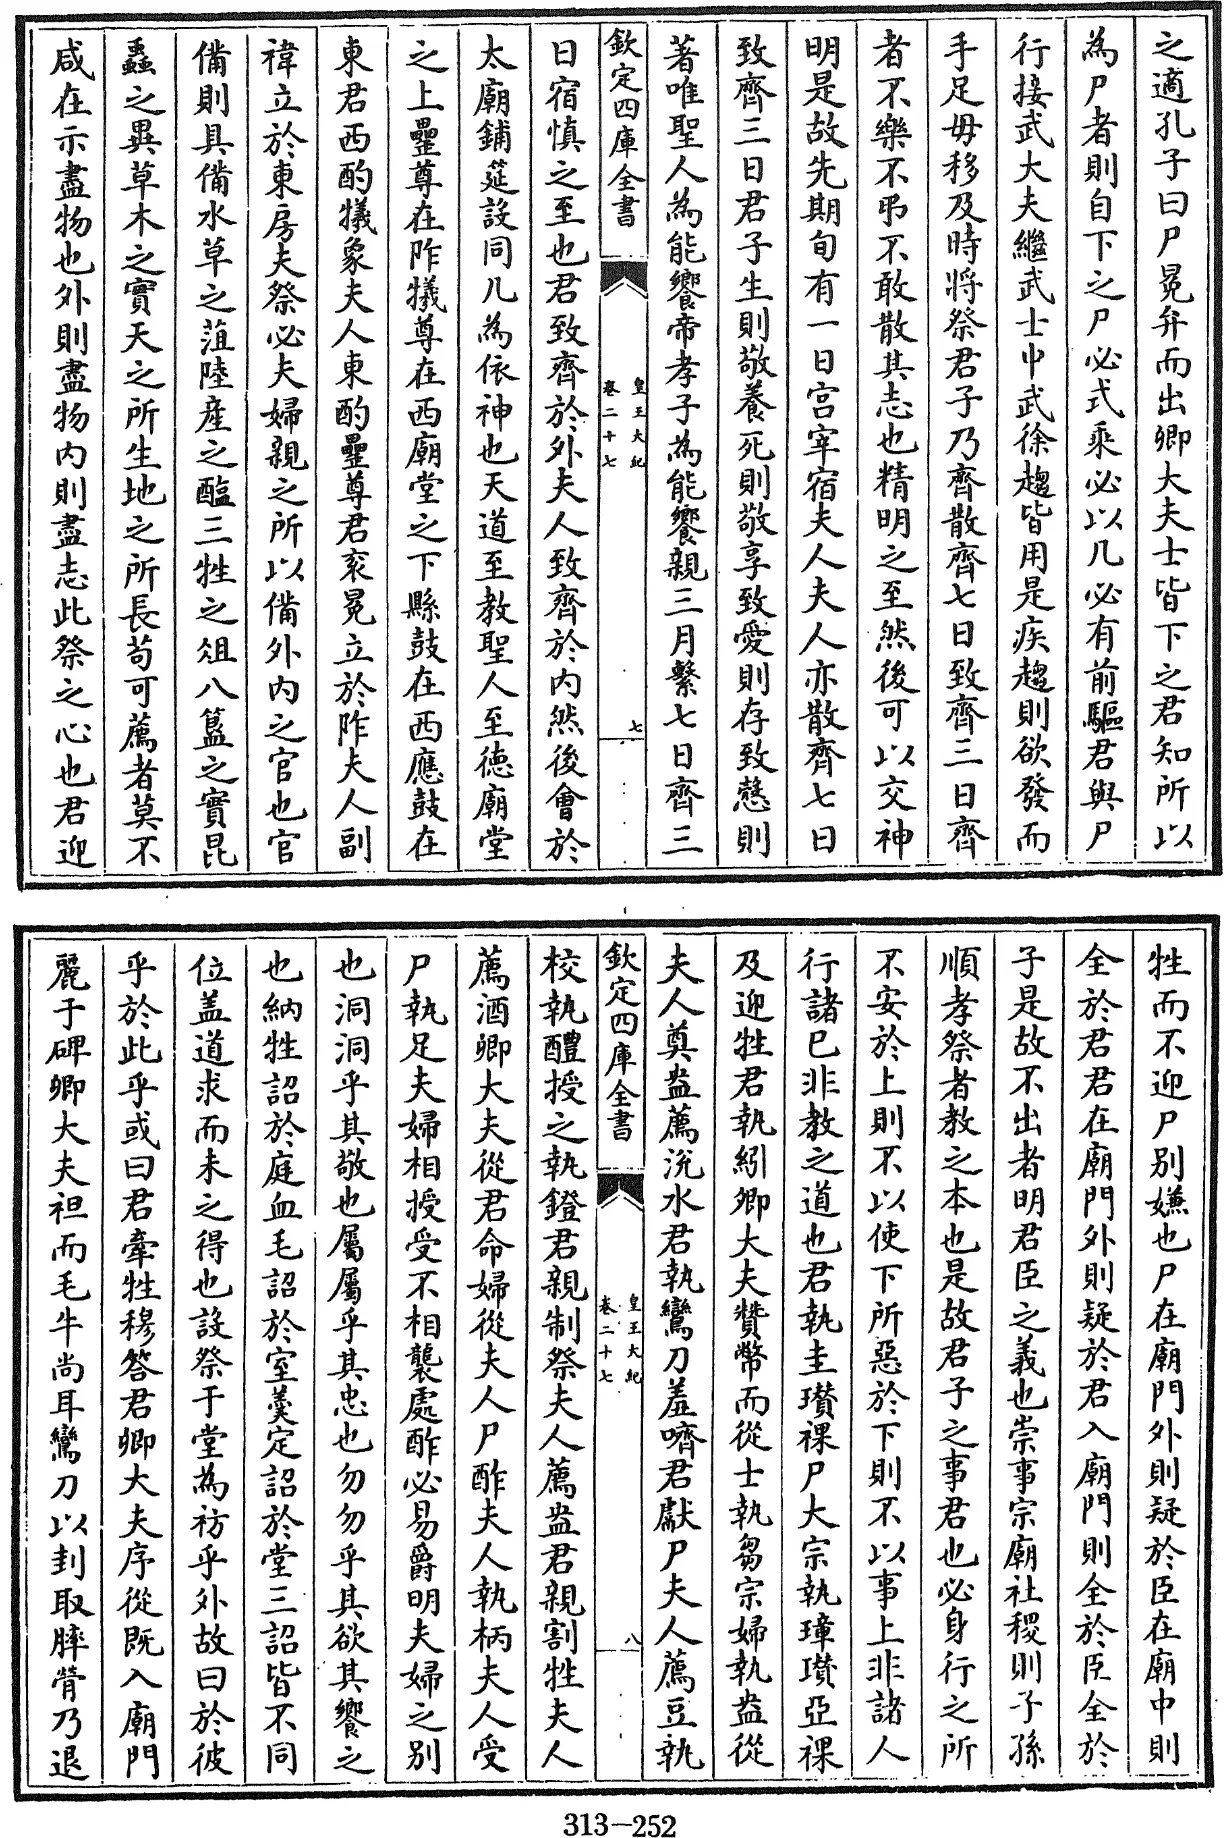 之適孔子曰尸冕弁而出卿大夫士皆下之君知所以
為尸者則自下之尸必式乘必以几必有前驅君與尸
行接武大夫繼武士中武徐趨皆用是疾趨則欲發而
手足毋移及時將祭君子乃齊散齊七日致齊三日齊
者不樂不弔不敢散其志也精明之至然後可以交神
明是故先期旬有一日宫宰宿夫人夫人亦散齊七日
致齊三日君子生則敬養死則敬享致愛則存致慤則
著唯聖人為能饗帝孝子為能饗親三月繫七日齊三
欽定四庫全書
皇王大紀
卷二十七
七
日宿慎之至也君致齊於外夫人致齊於内然後會於
太廟鋪筵設同几為依神也天道至教聖人至德廟堂
之上罍尊在阼犧尊在西廟堂之下縣鼓在西應鼓在
東君西酌犧象夫人東酌罍尊君衮冕立於阼夫人副
褘立於東房夫祭必夫婦親之所以備外内之官也官
備則具備水草之菹陸産之醢三牲之俎八簋之實昆
蟲之異草木之實天之所生地之所長苟可薦者莫不
咸在示盡物也外則盡物内則盡志此祭之心也君迎
牲而不迎尸别嫌也尸在廟門外則疑於臣在廟中則
全於君君在廟門外則疑於君入廟門則全於臣全於
子是故不出者明君臣之義也崇事宗廟社稷則子孫
順孝祭者教之本也是故君子之事君也必身行之所
不安於上則不以使下所惡於下則不以事上非諸人
行諸已非教之道也君執圭瓚祼尸大宗執璋瓚亞祼
及迎牲君執紖卿大夫贊幣而從士執芻宗婦執盎從
夫人奠盎薦涗水君執鸞刀羞嚌君獻尸夫人薦豆執
欽定四庫全書
皇王大紀
卷二十七
八
校執醴授之執鐙君親制祭夫人薦盎君親割牲夫人
薦酒卿大夫從君命婦從夫人尸酢夫人執柄夫人受
尸執足夫婦相授受不相襲處酢必易爵明夫婦之别
也洞洞乎其敬也屬屬乎其忠也勿勿乎其欲其饗之
也納牲詔於庭血毛詔於室羹定詔於堂三詔皆不同
位盖道求而未之得也設祭于堂為祊乎外故曰於彼
乎於此乎或曰君牽牲穆答君卿大夫序從既入廟門
麗于碑卿大夫袒而毛牛尚耳鸞刀以刲取膟膋乃退
313-252